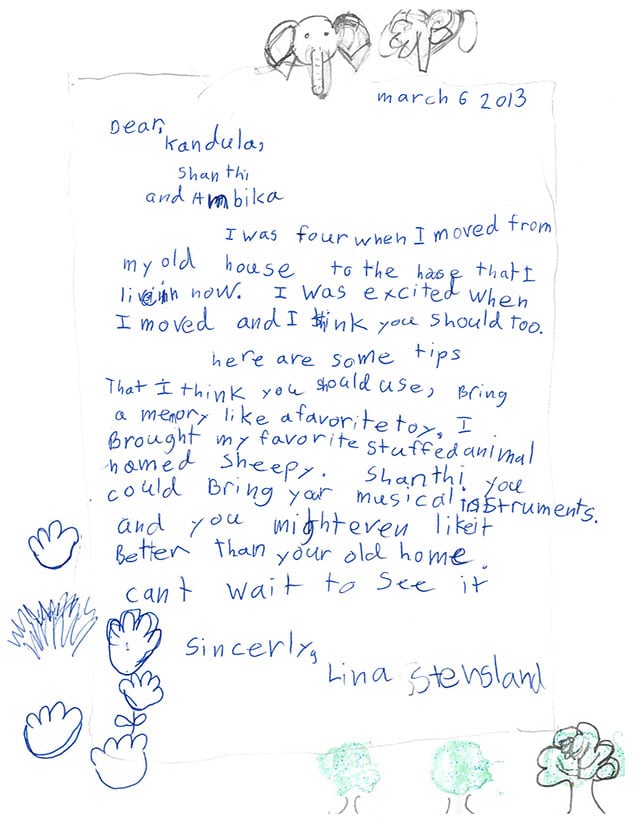 march 6 2013
Dear,
Kandula,
Shanthi
and Ambika
I was four when I moved from
my old house to the hase that I
live in now. I was excited when
I moved and I think you should too.
here are some tips
That I think you should use, Bring
a memory like a favorite toy, I
Brought my favorite stuffed animal
named Sheepy. Shanthi you
could Bring your musical instruments.
and you might even like it
Better than your old home.
can't wait to See it
Sincerly,
Lina Stensland